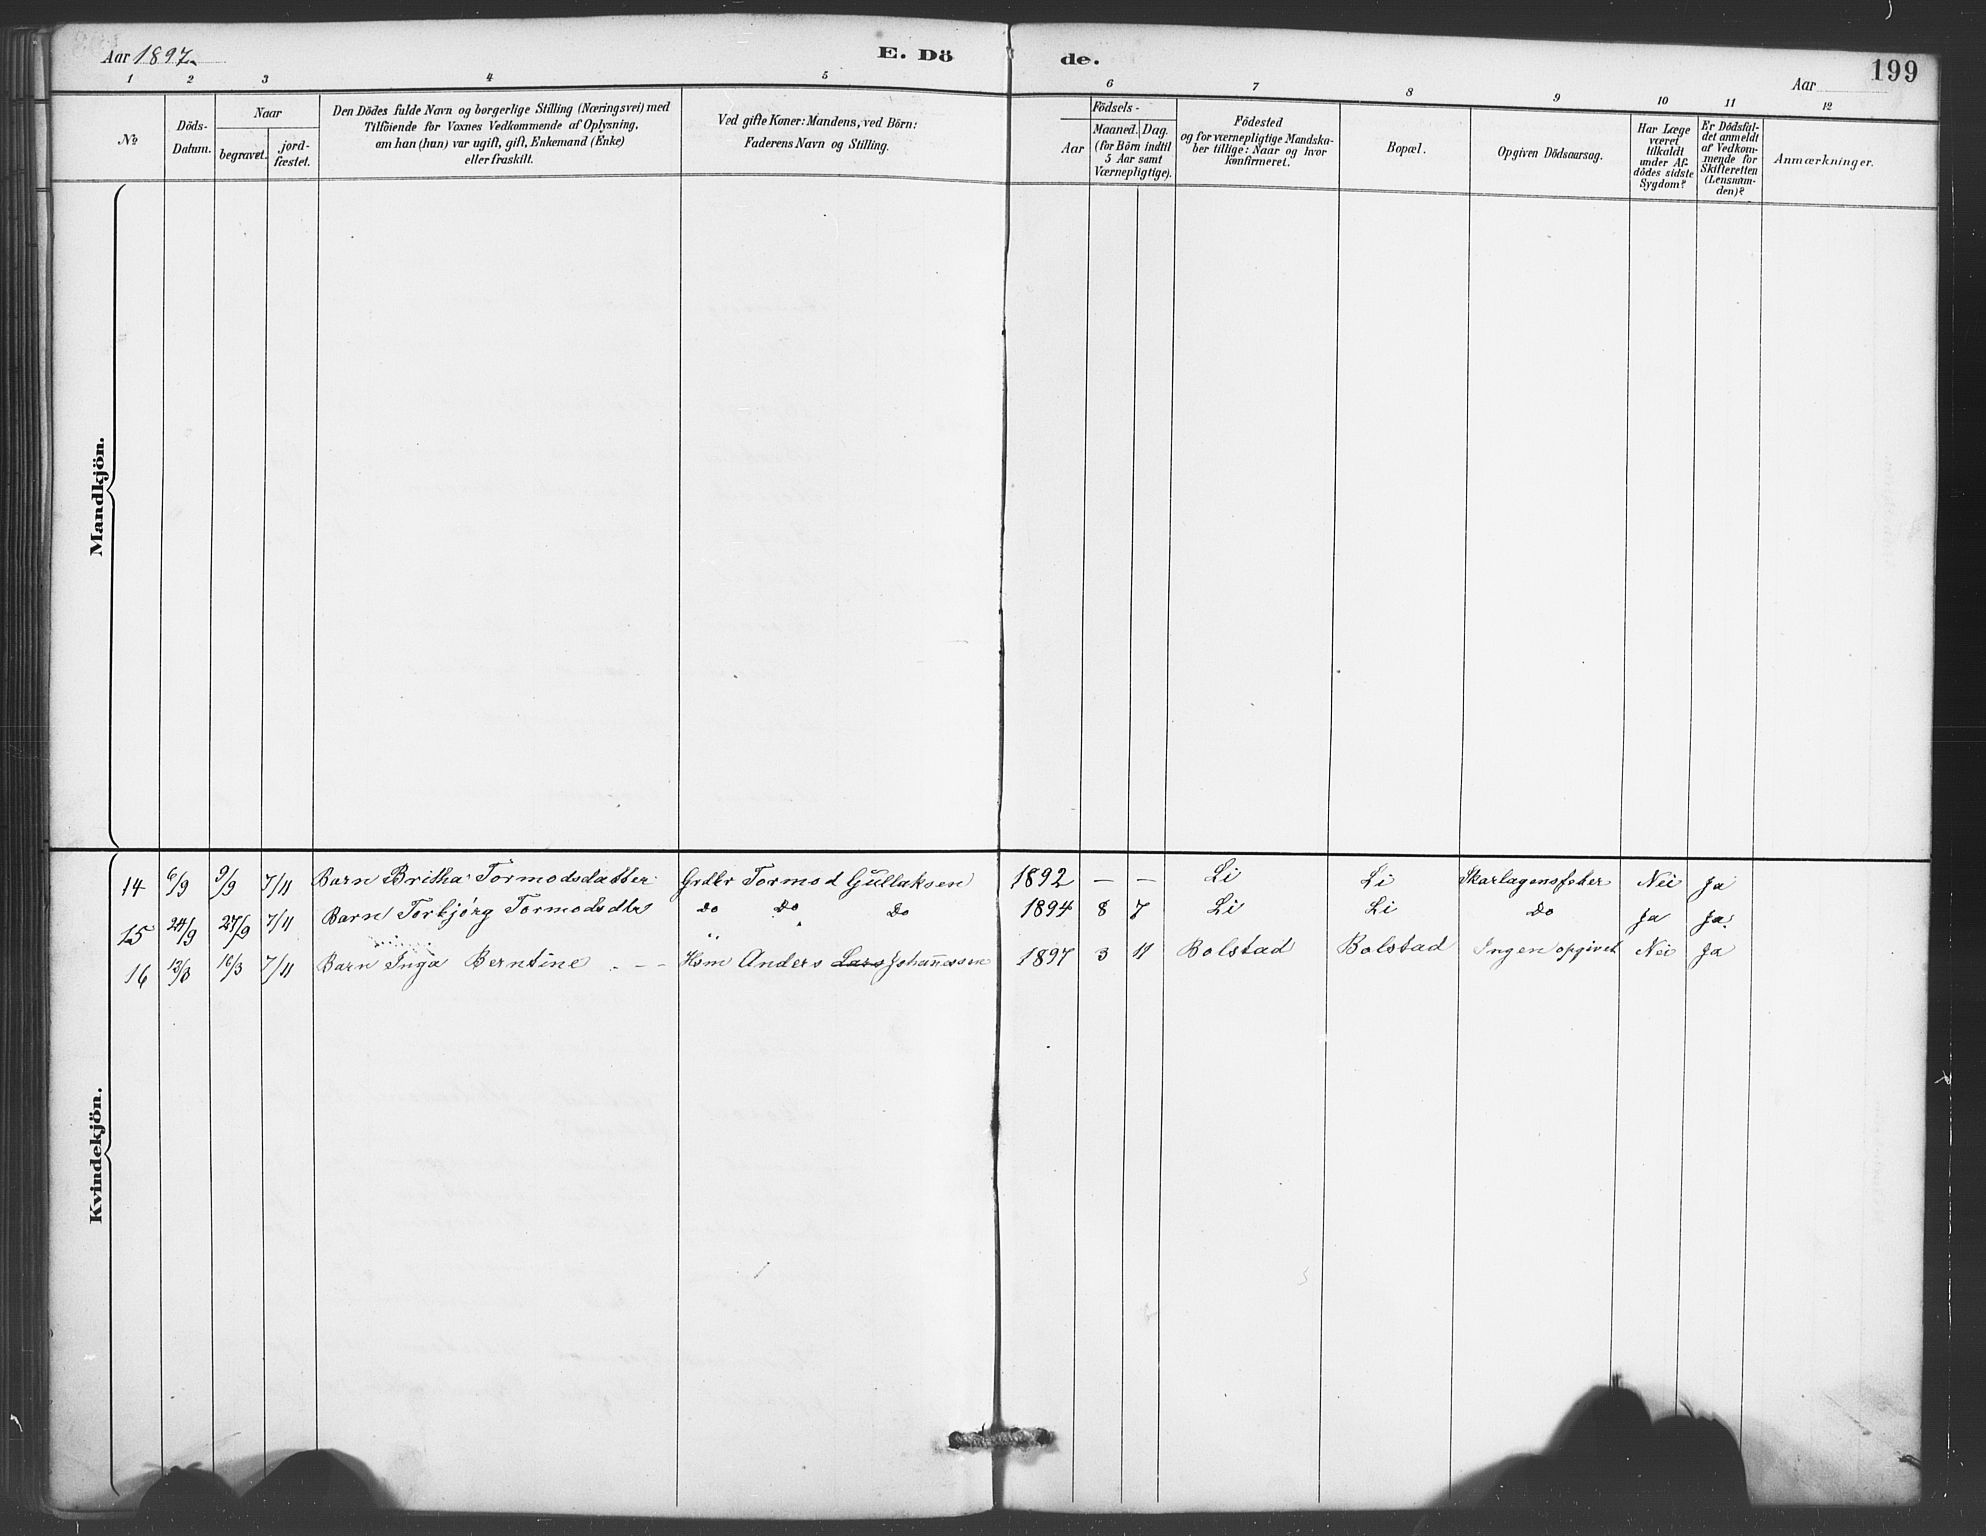 Aar 1897.
E. Dö
de.
Aar
199
1 2 3 4 5 6 7 8 9 10 11 12
No
Döds-
Datum.
Naar
begravet.
jord-
fæstet.
Den Dödes fulde Navn og borgerlige Stilling (Næringsvei) med
Tilföiende for Voxnes Vedkommende af Oplysning,
om han (hun) var ugift, gift, Enkemand (Enke)
eller fraskilt.
Ved gifte Koner: Mandens, ved Börn:
Faderens Navn og Stilling.
Födsels-
Aar
Maaned. Dag.
(for Börn indtil
5 Aar samt
Værnepligtige).
Födested
og for værnepligtige Mandska-
ber tillige: Naar og hvor
konfirmeret.
Bopæl.
Opgiven Dödsaarsag.
Har Læge
været
tilkaldt
under Af-
dödes sidste
Sygdom?
Er Dödsfal-
det anmeldt
af Vedkom-
mende for
Skifteretten
(Lensman-
den)?
Anmærkninger.
Mandkjön.
Kvindekjön.
14 6/9 9/9 7/11 Barn Britha Tormodsdatter Grdbr Tormod Gullaksen 1892 — — Li Li Skarlagensfeber Nei Ja
15 24/9 27/9 7/11 Barn Torbjørg Tormodsdtr Do Do Do 1894 8 7 Li Li Do Ja Ja.
16 13/8 16/3 7/11 Barn Inga Berntine - — Hsm Anders Lars Johannessen 1897 3 11 Bolstad Bolstad Ingen opgivet Nei Ja